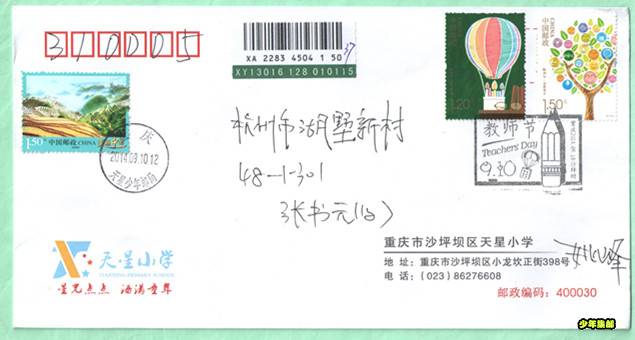 310005
XA 2283 4504 1 50
37
XY13016 128 010115
中国邮政 CHINA
1.50元
2014.09.10.12
天星少年邮局
CHINA
1.20
中国邮政
1.50元
教师节
Teachers' Day
9.10
杭州市湖墅新村
48-1-301
张书元(收)
天星小学
TIANXING PRIMARY SCHOOL
星光点点 润满童年
重庆市沙坪坝区天星小学
地 址：重庆市沙坪坝区小龙坎正街398号
电 话：(023) 86276608
邮政编码：400030
少年集邮